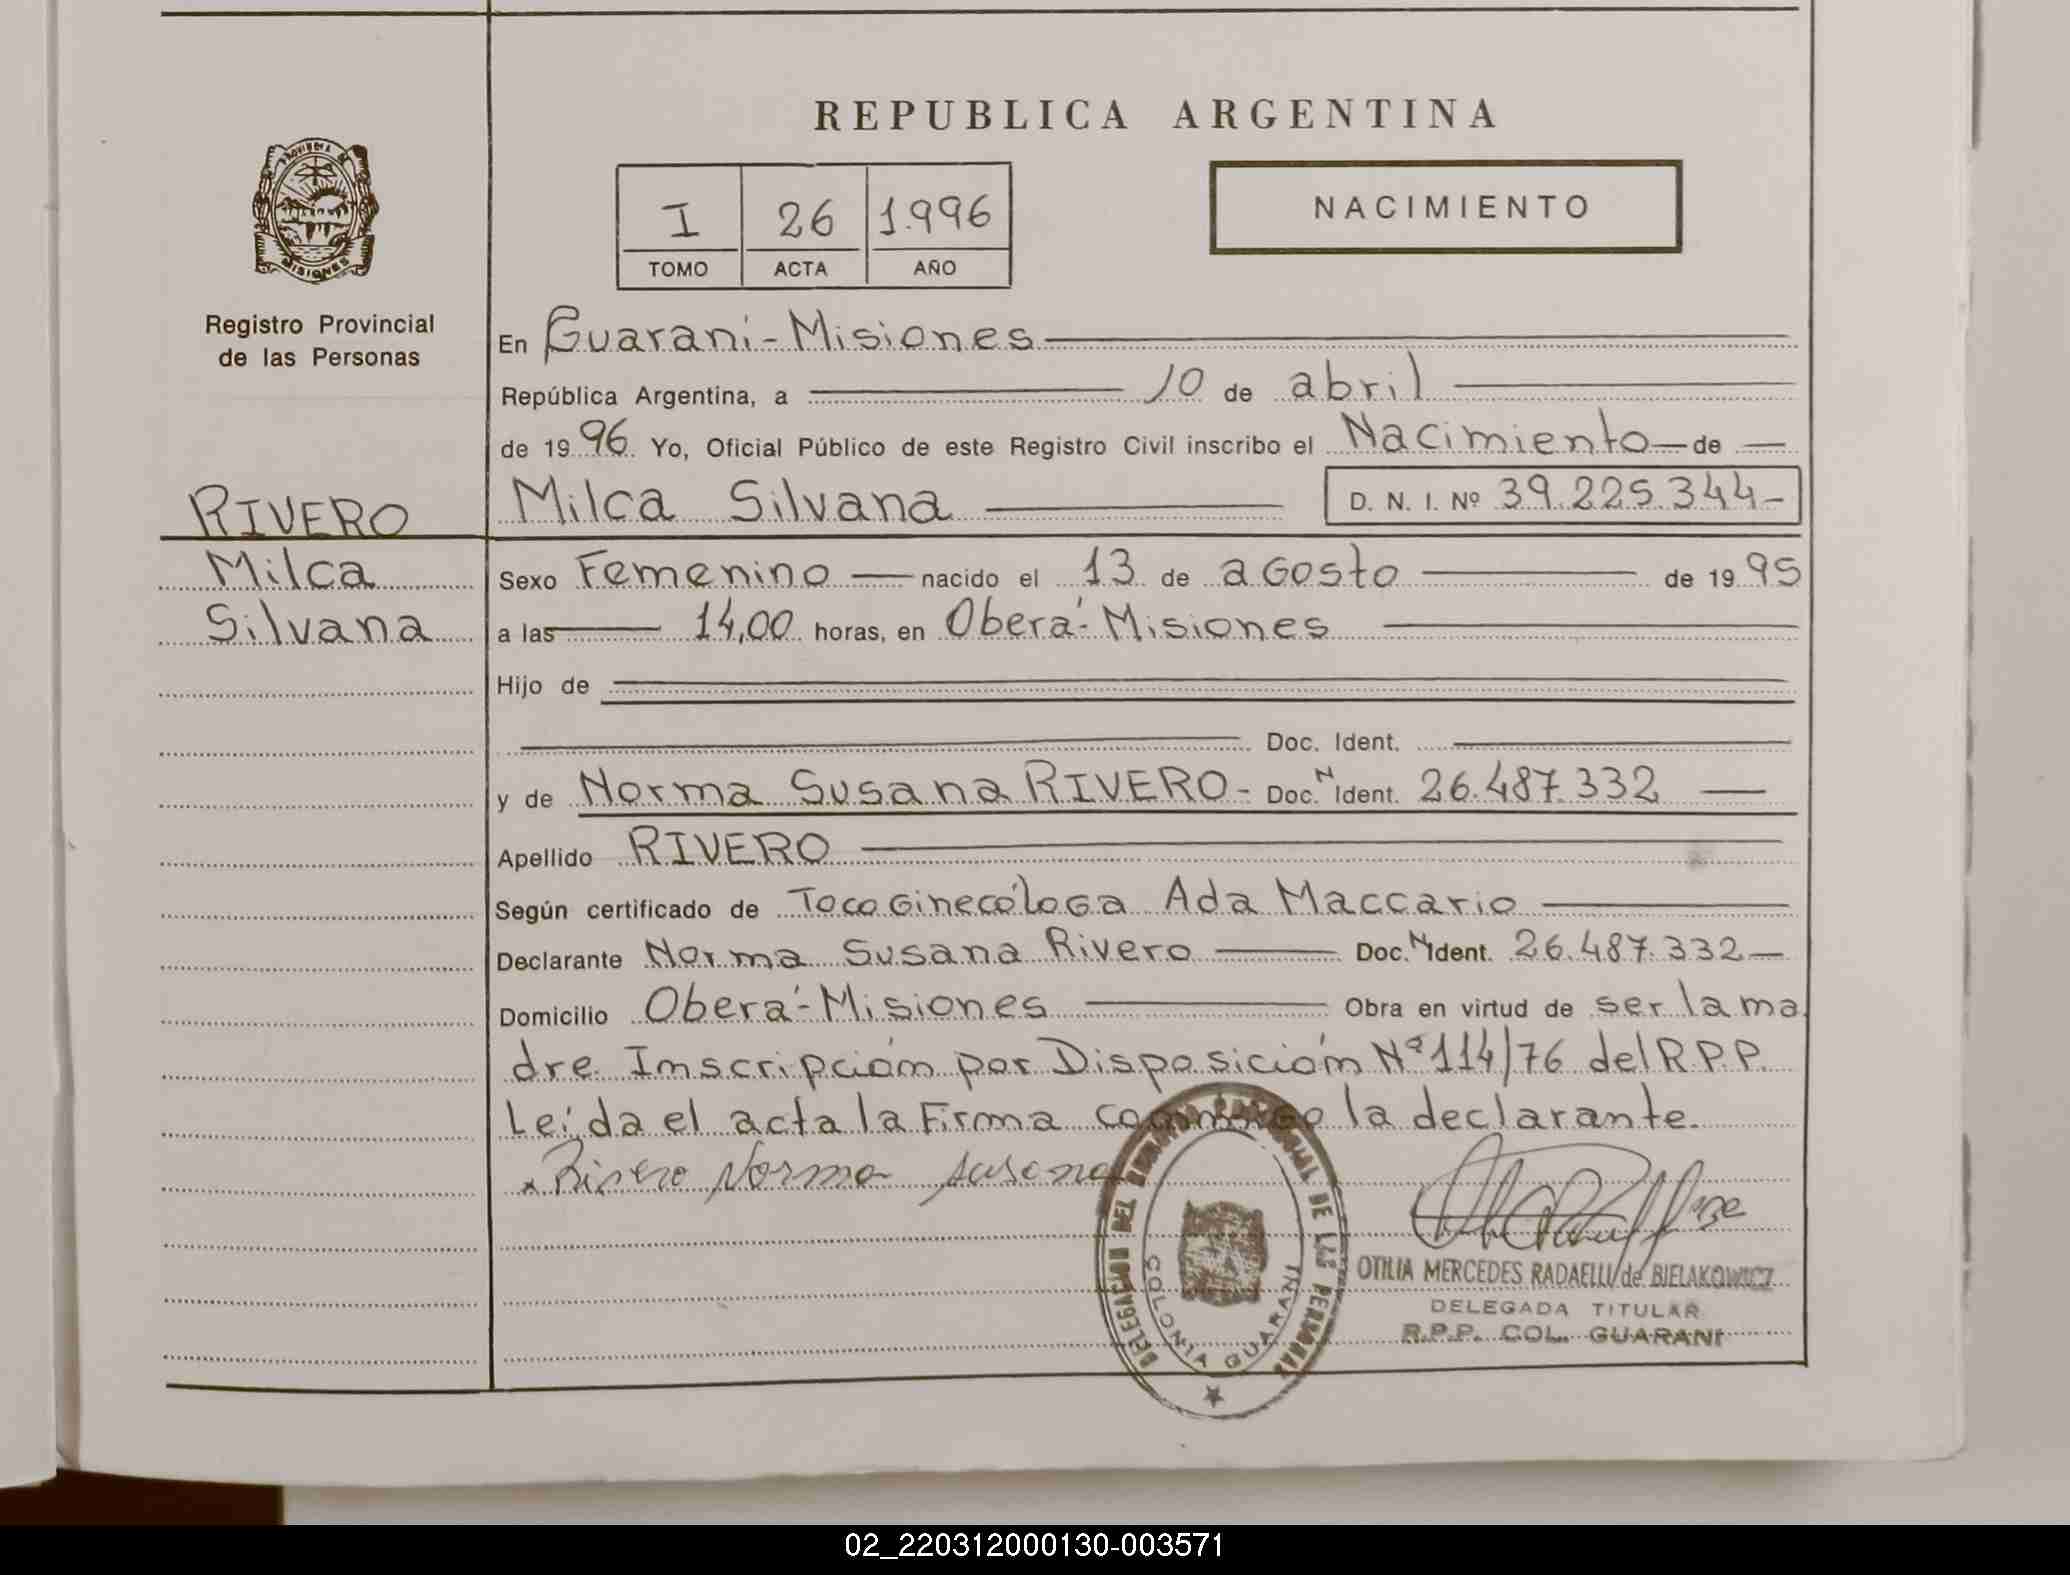 REPUBLICA ARGENTINA
PROVINCIA DE
MISIONES
Registro Provincial
de las Personas
I 26 1.996
TOMO ACTA AÑO
NACIMIENTO
En Guaraní-Misiones
República Argentina, a 10 de abril
de 19 96. Yo, Oficial Público de este Registro Civil inscribo el Nacimiento de
RIVERO
Milca
Silvana
Milca Silvana D. N. I. Nº 39.225.344-
Sexo Femenino nacido el 13 de agosto de 19 95
a las 14,00 horas, en Oberá-Misiones
Hijo de
Doc. Ident.
y de Norma Susana RIVERO- Doc. N Ident. 26.487.332
Apellido RIVERO
Según certificado de Tocoginecóloga Ada Maccario
Declarante Norma Susana Rivero Doc. N Ident. 26.487.332
Domicilio Oberá-Misiones Obra en virtud de ser la ma
dre. Inscripción por Disposición Nº 114/76 del R.P.P.
Leída el acta la Firma conmigo la declarante.
Rivero Norma Susana
DELEGACION DEL REGISTRO PROVINCIAL DE LAS PERSONAS
COLONIA GUARANI
OTILIA MERCEDES RADAELLI de BIELAKOWICZ
DELEGADA TITULAR
R.P.P. COL. GUARANI
02_220312000130-003571